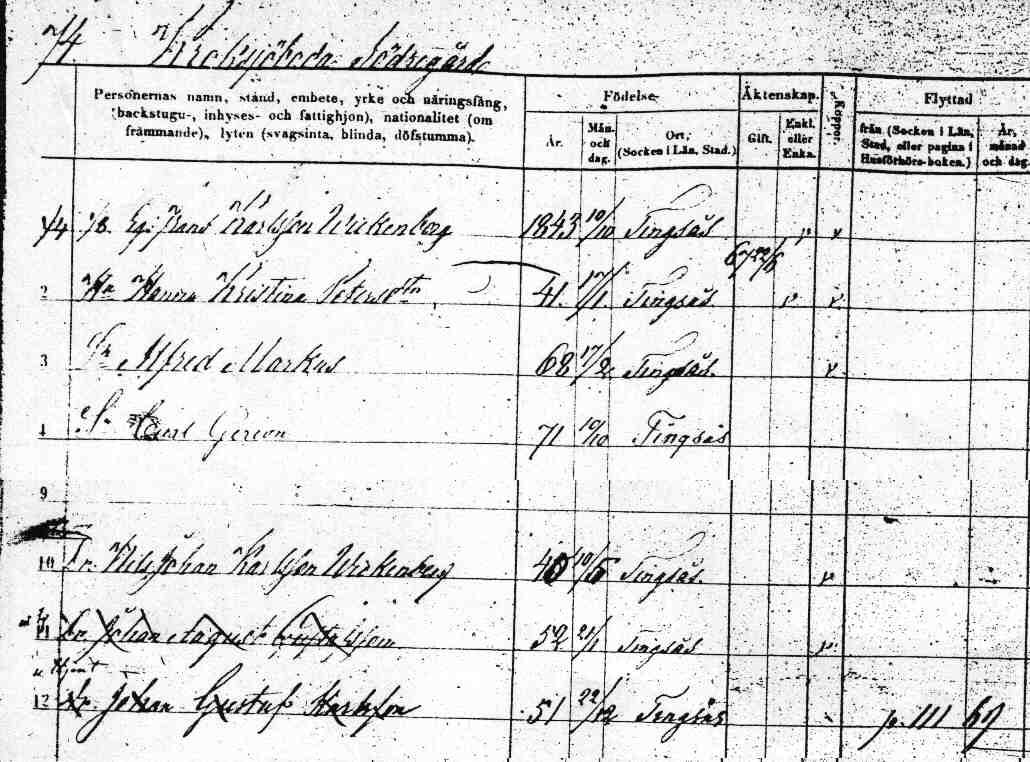 Södregård
Personernas namn, stånd, embete, yrke och näringsfång,
(backstugu-, inhyses- och fattighjon), nationalitet (om
främmande), lyten (svagsinta, blinda, döfstumma).
Födelse-
År.
Mån. och dag.
Ort,
(Socken i Län, Stad.)
Äktenskap.
Gift.
Enkl. eller Enka.
Koppor.
Flyttad
från (Socken i Län,
Stad, eller pagina i
Husförhörs-boken.)
År,
månad
och dag.
Karlsson Wirkenberg 1843 10/10 Tingsås
67 22/6
2 Hanna Kristina Petersdtr 41. 17/1. Tingsås
3 Alfred Markus 68 17/2 Tingsås
4 Carl Gereon 71 10/10 Tingsås
9
10 Dr. Nils Johan Karlsson Wirkenberg 40 10/5 Tingsås
11 Dr. Johan August Gustafsson 52 21/1 Tingsås
12 Dr. Johan Gustaf Karlsson 51 22/12 Tingsås p. 111 69